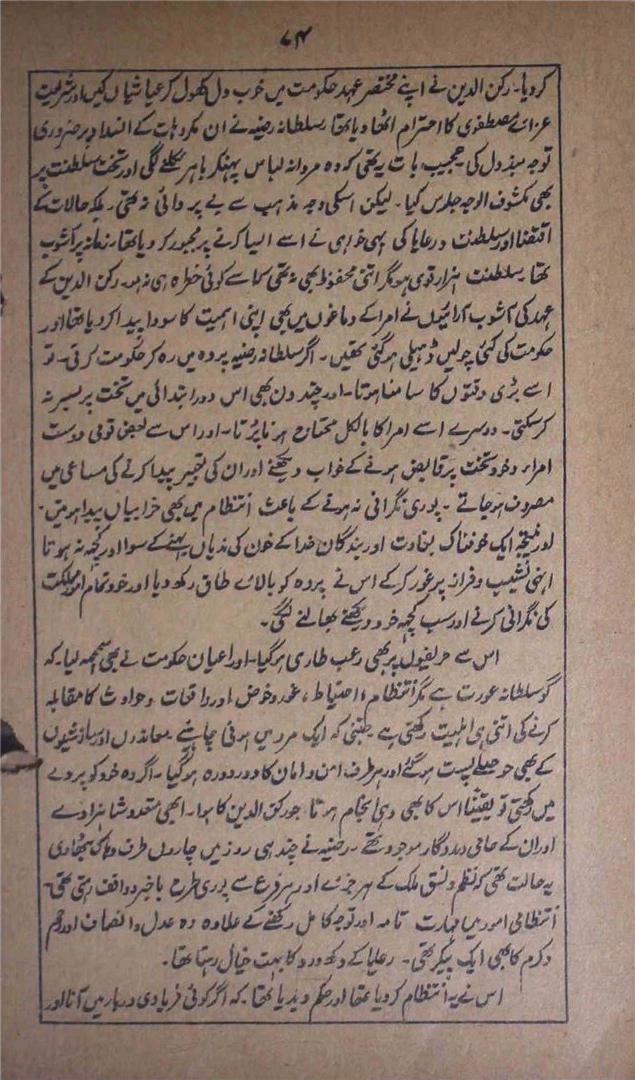 ۷۴
کردیا۔ رکن الدین نے اپنے مختصر عہد حکومت میں خوب دل کھول کر عیاشیاں کیں اور شریعت
عزائے مصطفوی کا احترام اٹھا دیا تھا، سلطانہ رضیہ نے ان مکروہات کے انسداد پر ضروری
توجہ مبذول کی۔ عجیب بات یہ تھی کہ وہ مردانہ لباس پہنکر باہر نکلنے لگی اور تخت سلطنت پر
بھی مکشوف الوجہ جلوس کیا۔ لیکن اسکی وجہ مذہب سے بے پروائی نہ تھی۔ بلکہ حالات کے
اقتضا اور سلطنت و رعایا کی بہی خواہی نے اسے ایسا کرنے پر مجبور کر دیا تھا، زمانہ پر آشوب
تھا، سلطنت ہزار قوی ہو مگر اتنی محفوظ بھی نہ تھی کہ اسے کوئی خطرہ ہی نہ ہو۔ رکن الدین کے
عہد کی آشوب آرائیوں نے امرا کے دماغوں میں بھی اپنی اہمیت کا سودا پیدا کر دیا تھا اور
حکومت کی کئی چولیں ڈہیلی ہو گئی تھیں۔ اگر سلطانہ رضیہ پردہ میں رہ کر حکومت کرتی۔ تو
اسے بڑی دقتوں کا سامنا ہوتا۔ اور چند دن بھی اس دور ابتدائی میں تخت پر بسر نہ
کر سکتی۔ دوسرے اسے امرا کا بالکل محتاج ہونا پڑتا۔ اور اس سے بعض قوی دست
امراء و خود تخت پر قابض ہونے کے خواب دیکھنے اور ان کی تعبیر پیدا کرنے کی مساعی میں
مصروف ہو جاتے۔ پوری نگرانی نہ ہونے کے باعث انتظام میں بھی خرابیاں پیدا ہوتیں۔
اور نتیجہ ایک خوفناک بغاوت اور بندگان خدا کے خون کی ندیاں بہنے کے سوا اور کچھ نہ ہوتا
انہی نشیب و فراز پر غور کر کے اس نے پردہ کو بالائے طاق رکھ دیا اور خود تمام امور مملکت
کی نگرانی کرنے اور سب کچھ خود دیکھنے بھالنے لگی۔
اس سے حریفوں پر بھی رعب طاری ہو گیا۔ اور اعیان حکومت نے بھی سمجھ لیا۔ کہ
گو سلطانہ عورت ہے مگر انتظام، احتیاط، غور و خوض اور واقعات و حوادث کا مقابلہ
کرنے کی اتنی ہی اہلیت رکھتی ہے جتنی کہ ایک مرد میں ہونی چاہئے۔ معاندوں اور سازشیوں
کے بھی حوصلے پست ہو گئے اور ہر طرف امن و امان کا دور دورہ ہو گیا۔ اگر وہ خود کو پردے
میں رکھتی تو یقیناً اس کا بھی وہی انجام ہوتا جو رکن الدین کا ہوا۔ ابھی متعدد شاہزادے
اور ان کے حامی و مددگار موجود تھے۔ رضیہ نے چند ہی روز میں چاروں طرف دہاک بٹھا دی
یہ حالت تھی کہ نظم و نسق ملک کے ہر جزے اور ہر فرع سے پوری طرح باخبر و واقف رہتی تھی۔
انتظامی امور میں مہارت تامہ اور توجہ کامل رکھنے کے علاوہ وہ عدل و انصاف اور رحم
و کرم کا بھی ایک پیکر تھی۔ رعایا کے دکھ درد کا بہت خیال رہتا تھا۔
اس نے یہ انتظام کر دیا تھا اور حکم دیدیا تھا۔ کہ اگر کوئی فریادی دربار میں آنا اور